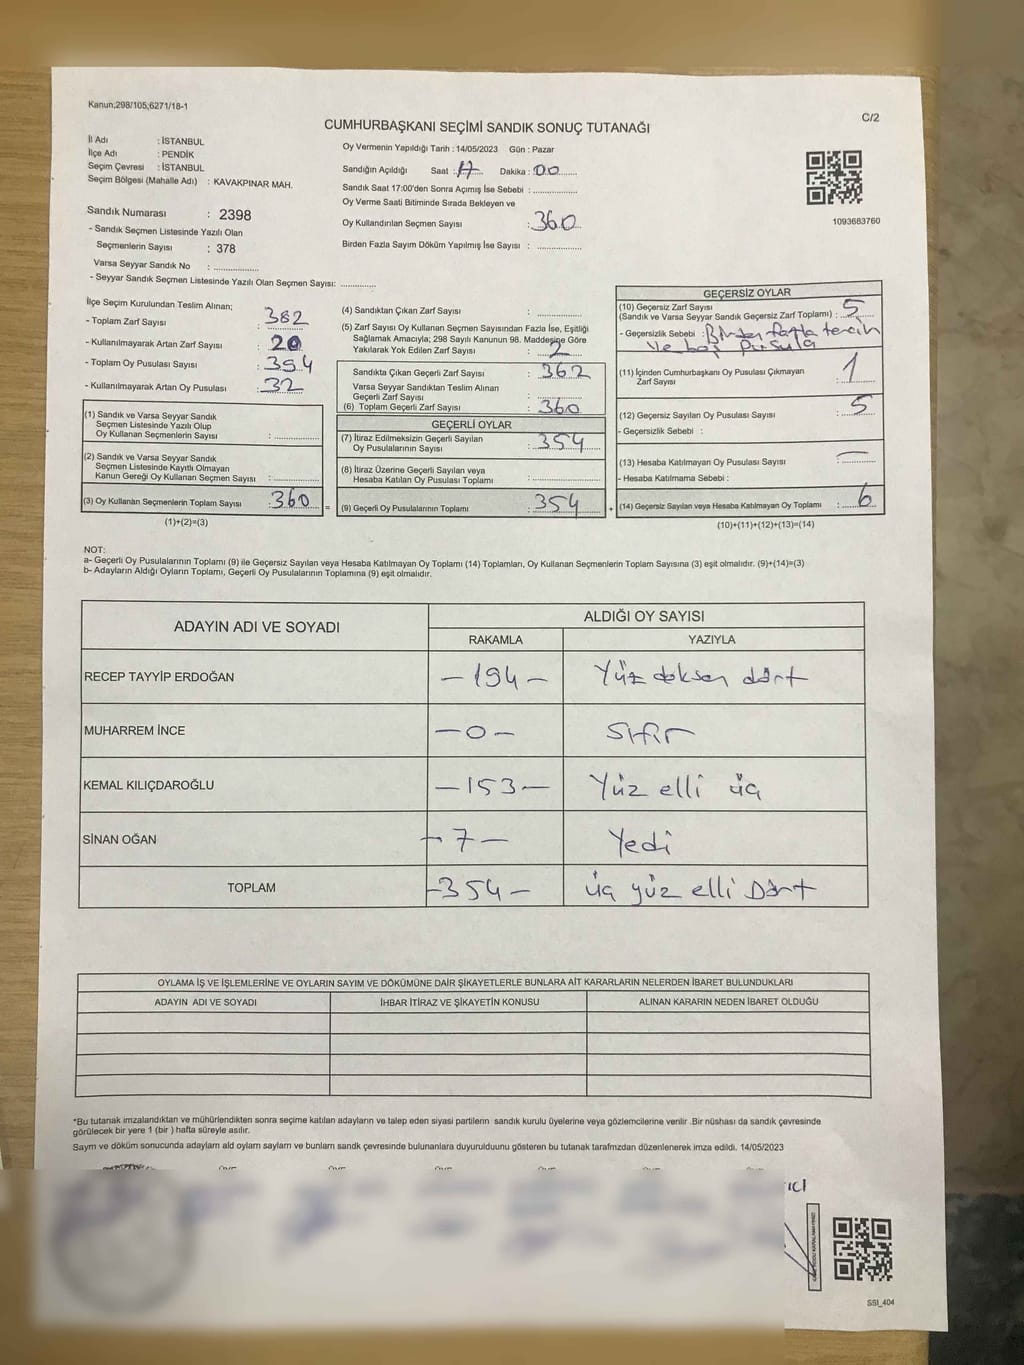 Kanun;298/105;6271/18-1
C/2
CUMHURBAŞKANI SEÇİMİ SANDIK SONUÇ TUTANAĞI
İl Adı : İSTANBUL
İlçe Adı : PENDİK
Seçim Çevresi : İSTANBUL
Seçim Bölgesi (Mahalle Adı) : KAVAKPINAR MAH.
Sandık Numarası : 2398
- Sandık Seçmen Listesinde Yazılı Olan
Seçmenlerin Sayısı : 378
Varsa Seyyar Sandık No : ................
- Seyyar Sandık Seçmen Listesinde Yazılı Olan Seçmen Sayısı: ............
Oy Vermenin Yapıldığı Tarih : 14/05/2023 Gün : Pazar
Sandığın Açıldığı Saat : 17 Dakika : 00
Sandık Saat 17:00'den Sonra Açımış İse Sebebi : ...............
Oy Verme Saati Bitiminde Sırada Bekleyen ve
Oy Kullandırılan Seçmen Sayısı : 360
Birden Fazla Sayım Döküm Yapılmış İse Sayısı : ...............
1093683760
İlçe Seçim Kurulundan Teslim Alınan;
- Toplam Zarf Sayısı : 382
- Kullanılmayarak Artan Zarf Sayısı : 20
- Toplam Oy Pusulası Sayısı : 394
- Kullanılmayarak Artan Oy Pusulası : 32
(1) Sandık ve Varsa Seyyar Sandık
Seçmen Listesinde Yazılı Olup
Oy Kullanan Seçmenlerin Sayısı : ...............
(2) Sandık ve Varsa Seyyar Sandık
Seçmen Listesinde Kayıtlı Olmayan
Kanun Gereği Oy Kullanan Seçmen Sayısı : ...............
(3) Oy Kullanan Seçmenlerin Toplam Sayısı : 360 =
(1)+(2)=(3)
(4) Sandıktan Çıkan Zarf Sayısı : ...............
(5) Zarf Sayısı Oy Kullanan Seçmen Sayısından Fazla İse, Eşitliği
Sağlamak Amacıyla; 298 Sayılı Kanunun 98. Maddesine Göre
Yakılarak Yok Edilen Zarf Sayısı : 2
Sandıkta Çıkan Geçerli Zarf Sayısı : 362
Varsa Seyyar Sandıktan Teslim Alınan
Geçerli Zarf Sayısı : ...............
(6) Toplam Geçerli Zarf Sayısı : 360
GEÇERLİ OYLAR
(7) İtiraz Edilmeksizin Geçerli Sayılan
Oy Pusulalarının Sayısı : 354
(8) İtiraz Üzerine Geçerli Sayılan veya
Hesaba Katılan Oy Pusulası Toplamı : ...............
(9) Geçerli Oy Pusulalarının Toplamı : 354 +
GEÇERSİZ OYLAR
(10) Geçersiz Zarf Sayısı
(Sandık ve Varsa Seyyar Sandık Geçersiz Zarf Toplamı) : 5
- Geçersizlik Sebebi : Birden fazla tercih
ve boş pusula
(11) İçinden Cumhurbaşkanı Oy Pusulası Çıkmayan
Zarf Sayısı : 1
(12) Geçersiz Sayılan Oy Pusulası Sayısı : 5
- Geçersizlik Sebebi :
(13) Hesaba Katılmayan Oy Pusulası Sayısı : —
- Hesaba Katılmama Sebebi :
(14) Geçersiz Sayılan veya Hesaba Katılmayan Oy Toplamı : 6
(10)+(11)+(12)+(13)=(14)
NOT:
a- Geçerli Oy Pusulalarının Toplamı (9) ile Geçersiz Sayılan veya Hesaba Katılmayan Oy Toplamı (14) Toplamları, Oy Kullanan Seçmenlerin Toplam Sayısına (3) eşit olmalıdır. (9)+(14)=(3)
b- Adayların Aldığı Oyların Toplamı, Geçerli Oy Pusulalarının Toplamına (9) eşit olmalıdır.
ADAYIN ADI VE SOYADI ALDIĞI OY SAYISI
RAKAMLA YAZIYLA
RECEP TAYYİP ERDOĞAN -194- Yüz doksan dört
MUHARREM İNCE -0- Sıfır
KEMAL KILIÇDAROĞLU -153- Yüz elli üç
SİNAN OĞAN -7- Yedi
TOPLAM -354- üç yüz elli Dört
OYLAMA İŞ VE İŞLEMLERİNE VE OYLARIN SAYIM VE DÖKÜMÜNE DAİR ŞİKAYETLERLE BUNLARA AİT KARARLARIN NELERDEN İBARET BULUNDUKLARI
ADAYIN ADI VE SOYADI İHBAR İTİRAZ VE ŞİKAYETİN KONUSU ALINAN KARARIN NEDEN İBARET OLDUĞU
*Bu tutanak imzalandıktan ve mühürlendikten sonra seçime katılan adayların ve talep eden siyasi partilerin sandık kurulu üyelerine veya gözlemcilerine verilir .Bir nüshası da sandık çevresinde
görülecek bir yere 1 (bir ) hafta süreyle asılır.
Sayım ve döküm sonucunda adayların aldığı oyların sayıları ve bunların sandık çevresinde bulunanlara duyurulduunu gösteren bu tutanak tarafmzdan düzenlenerek imza edildi. 14/05/2023
SSI_404